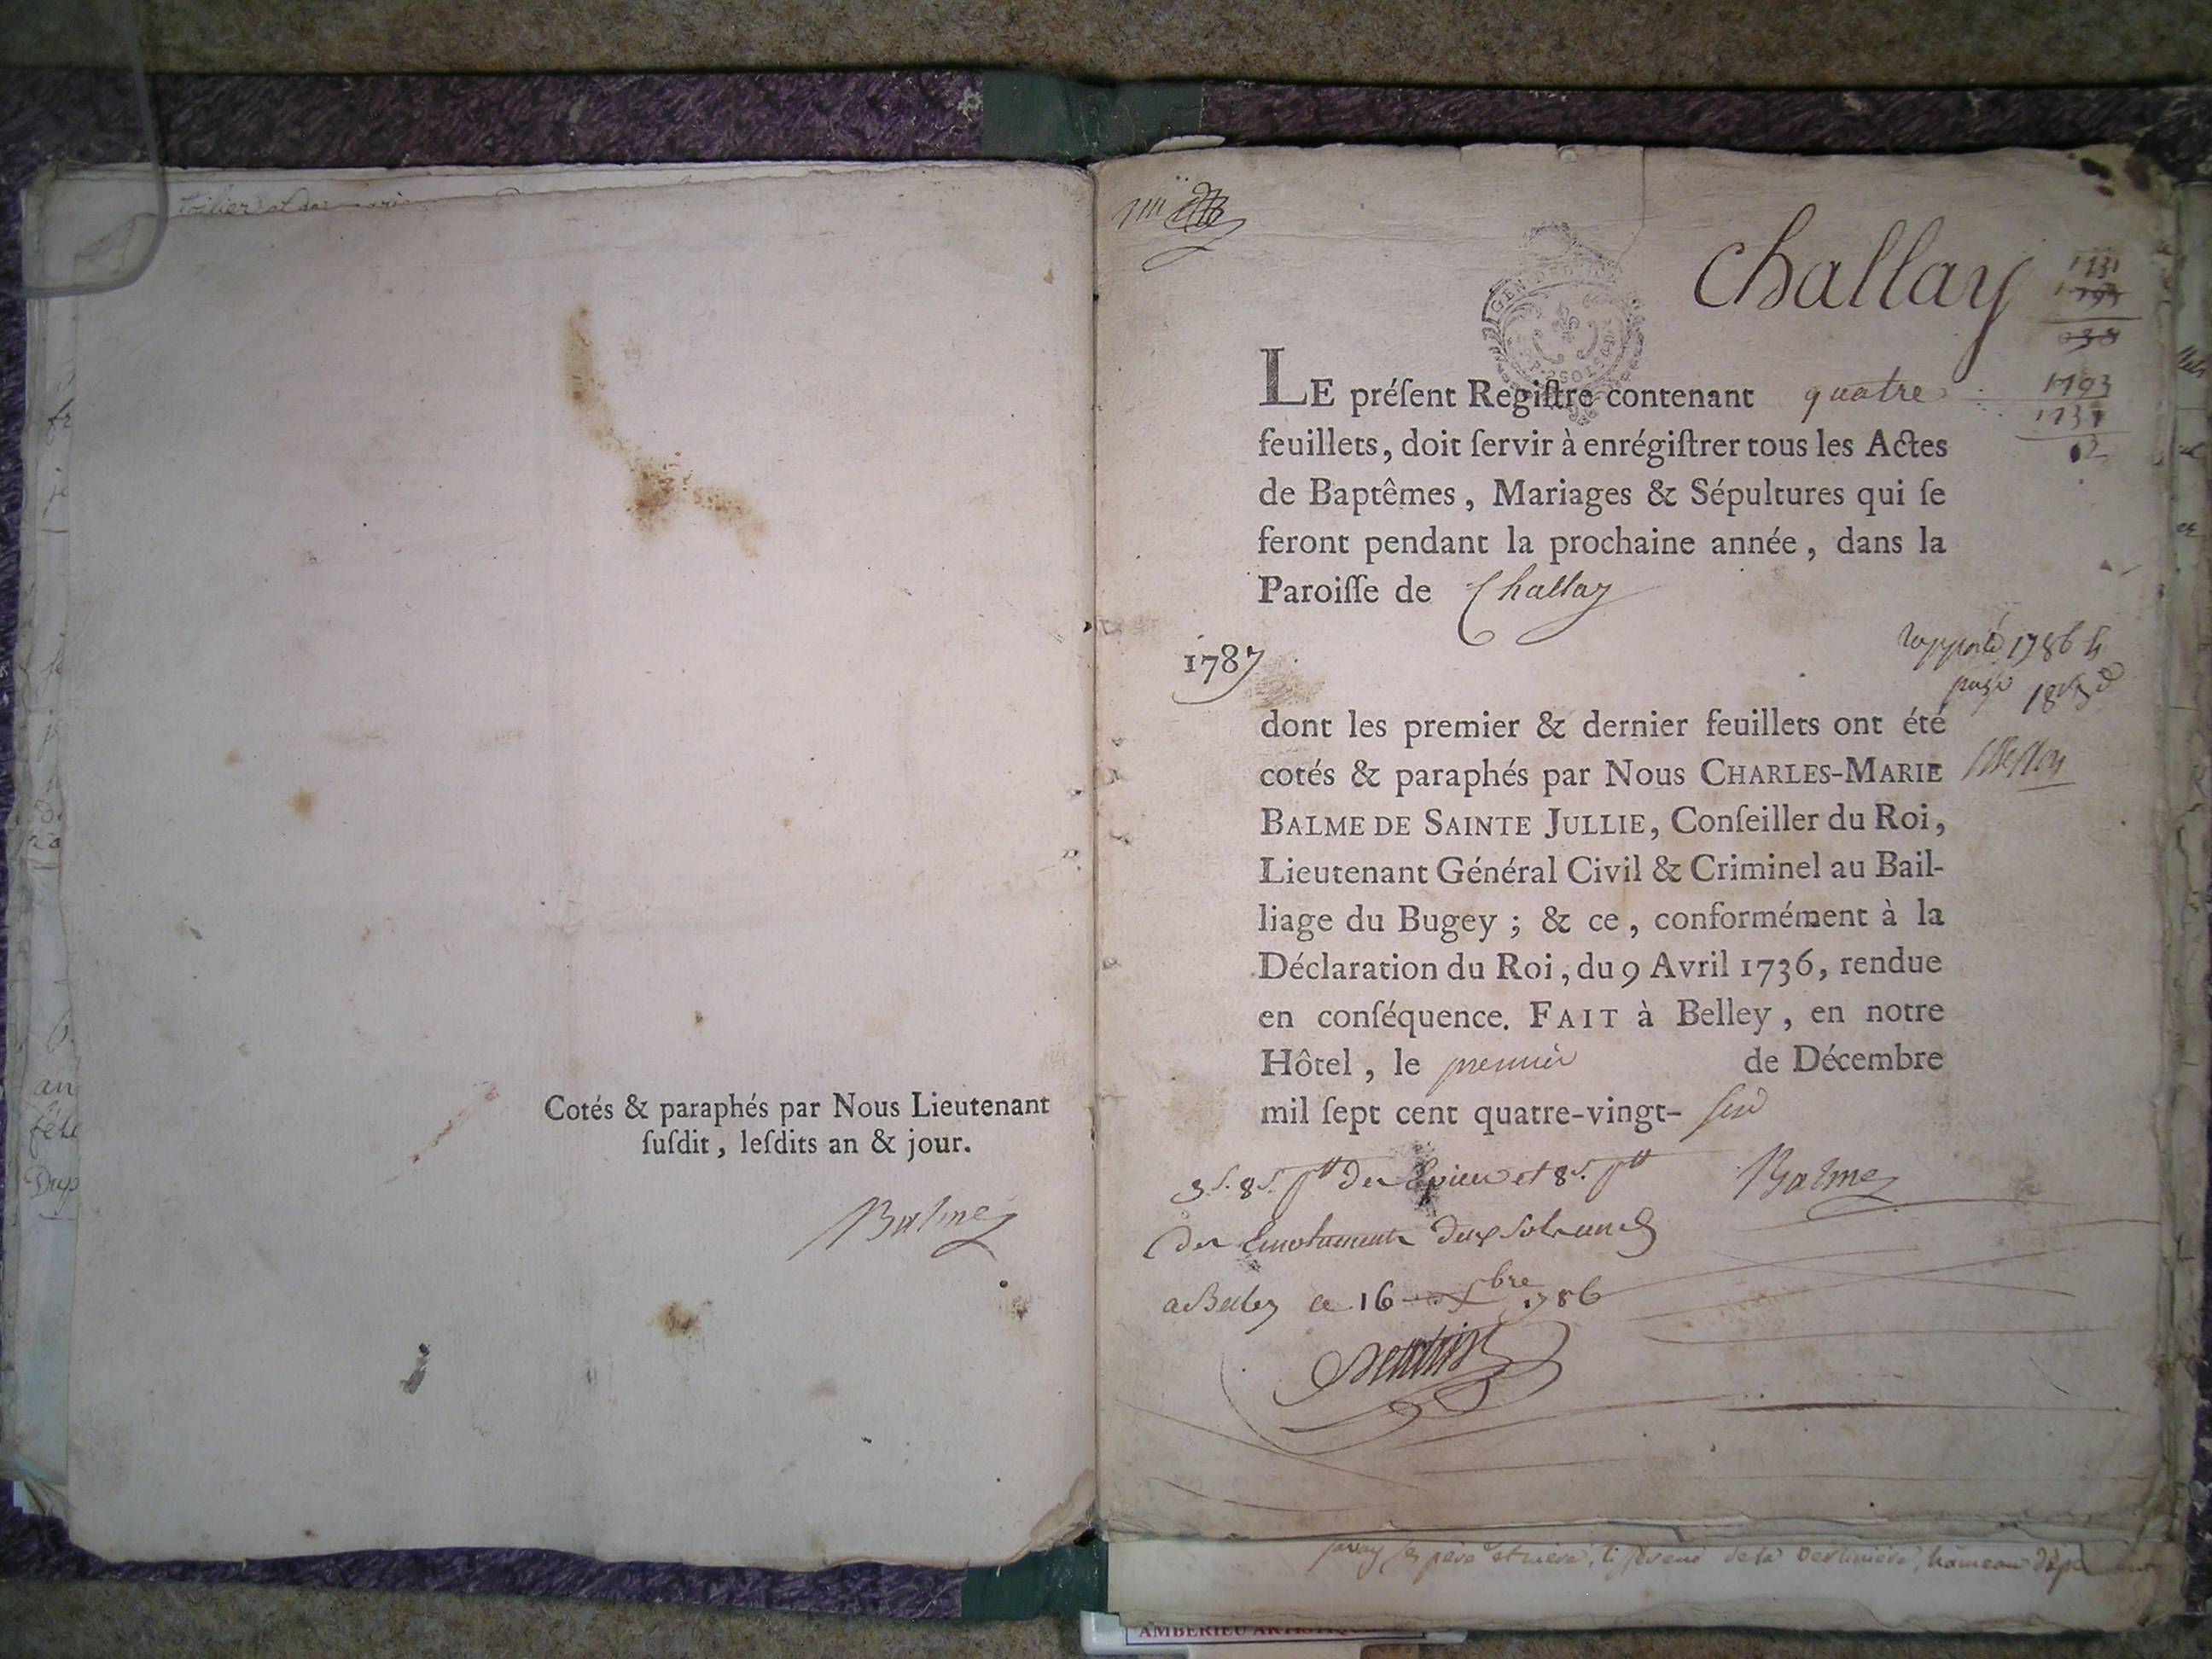 Cotés & paraphés par Nous Lieutenant
ſuſdit, leſdits an & jour.
Balme
Challay
1731
1793
038
1793
1731
LE préſent Regiſtre contenant quatre
feuillets, doit ſervir à enrégiſtrer tous les Actes
de Baptêmes, Mariages & Sépultures qui ſe
feront pendant la prochaine année, dans la
Paroiſſe de Challay
1787
dont les premier & dernier feuillets ont été
cotés & paraphés par Nous CHARLES-MARIE
BALME DE SAINTE JULLIE, Conſeiller du Roi,
Lieutenant Général Civil & Criminel au Bail-
liage du Bugey; & ce, conformément à la
Déclaration du Roi, du 9 Avril 1736, rendue
en conſéquence. FAIT à Belley, en notre
Hôtel, le premier de Décembre
mil ſept cent quatre-vingt-
Balme
a Belley ce 16 bre 1786
père et mère, de la hameau
AMBERIEU